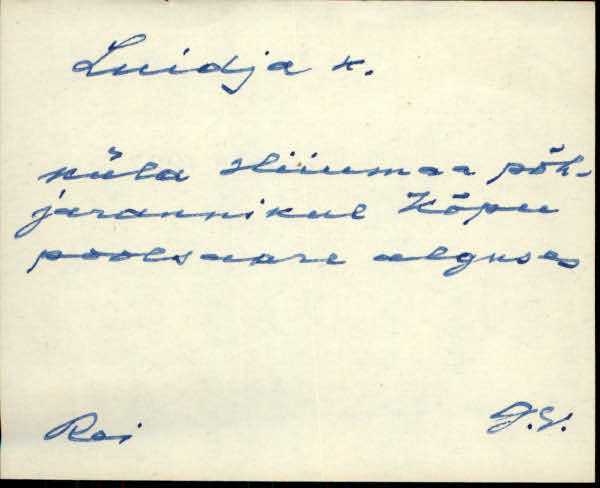 Luidja k.
küla Hiiumaa põh-
jarannikul Kõpu
poolsaare alguses
Rei